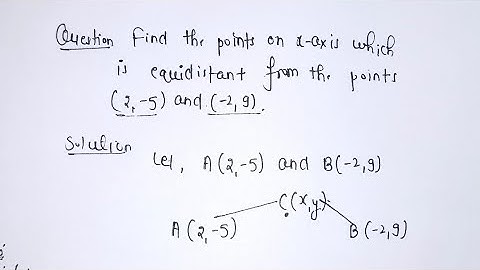 Question Find the points on x-axis which
is equidistant from the points
(2,-5) and (-2,9).
Solution
Let, A(2,-5) and B(-2,9)
C(x,y)
A(2,-5)
B(-2,9)